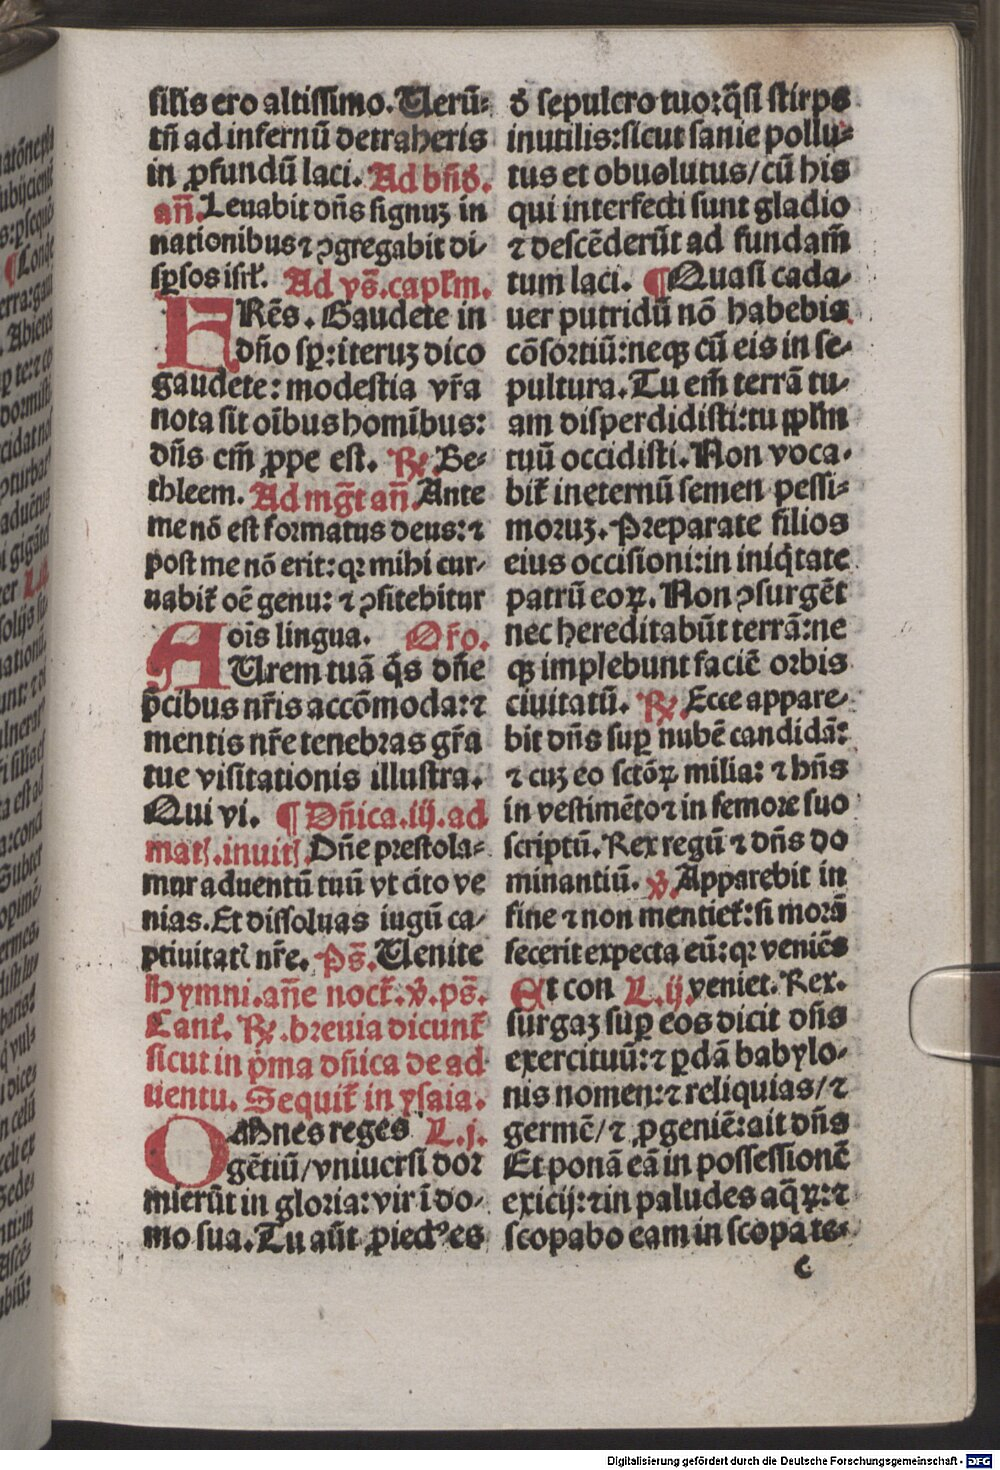 silis ero altissimo. Uerū⸗
tñ ad infernū detraheris
in ꝓfundū laci. Ad bñs.
añ. Leuabit dñs signuꝫ in
nationibus ⁊ ꝯgregabit di⸗
sꝑsos isrl. Ad vs̄. caplm.
FRēs. Gaudete in
dño sꝑ: iteruꝫ dico
gaudete: modestia vr̄a
nota sit oībus homībus:
dñs em̄ ꝓpe est. ℞. Be⸗
thleem. Ad mgt̄ añ. Ante
me nō est formatus deus: ⁊
post me nō erit: qꝛ mihi cur⸗
uabit᷑ oē genu: ⁊ ꝯfitebitur
ois̄ lingua. Or̄o.
AUrem tuā q̄s dñe
p̄cibus nr̄is accōmoda: ⁊
mentis nr̄e tenebras gr̄a
tue visitationis illustra.
Qui vi. ¶ Dñica. iij. ad
matꝭ. inuitꝭ. Dñe prestola⸗
mur aduentū tuū vt cito ve
nias. Et dissoluas iugū ca⸗
ptiuitatꝭ nr̄e. Ps̄. Uenite
Hymni. añe noct᷑. ꝟ. ps̄.
Cant᷑. ℞. breuia dicunt᷑
sicut in p̄ma dñica de ad
uentu. Sequit᷑ in ysaia.
OMnes reges L. j.
gētiū/ vniuersi dor
mierūt in gloria: vir ī do⸗
mo sua. Tu aūt ꝓiectꝰ es
d̄ sepulcro tuo: q̄si stirps
inutilis: sicut sanie pollu⸗
tus et obuolutus/ cū his
qui interfecti sunt gladio
⁊ descēderūt ad fundam̄
tum laci. ¶ Quasi cada⸗
uer putridū nō habebis
cōsortiū: neqꝫ cū eis in se⸗
pultura. Tu em̄ terrā tu⸗
am disperdidisti: tu ppl̄m
tuū occidisti. Non voca⸗
bit᷑ in eternū semen pessi⸗
moruꝫ. Preparate filios
eius occisioni: in iniq̄tate
patrū eoꝝ. Non ꝯsurgēt
nec hereditabūt terrā: ne
qꝫ implebunt faciē orbis
ciuitatū. ℞. Ecce appare⸗
bit dñs suꝑ nubē candidā:
⁊ cuꝫ eo sctōꝝ milia: ⁊ hñs
in vestimēto ⁊ in femore suo
scriptū. Rex regū ⁊ dñs do
minantiū. ꝟ. Apparebit in
fine ⁊ non mentiet᷑: si morā
fecerit expecta eū: qꝛ veniēs
Et con L. ij. veniet. Rex.
surgaꝫ suꝑ eos dicit dñs
exercituū: ⁊ ꝑdā babylo⸗
nis nomen: ⁊ reliquias/ ⁊
germē/ ⁊ ꝓgeniē: ait dñs
Et ponā eā in possessionē
exicij: ⁊ in paludes aq̄ꝝ: ⁊
scopabo eam in scopa te⸗
c
Digitalisierung gefördert durch die Deutsche Forschungsgemeinschaft - DFG